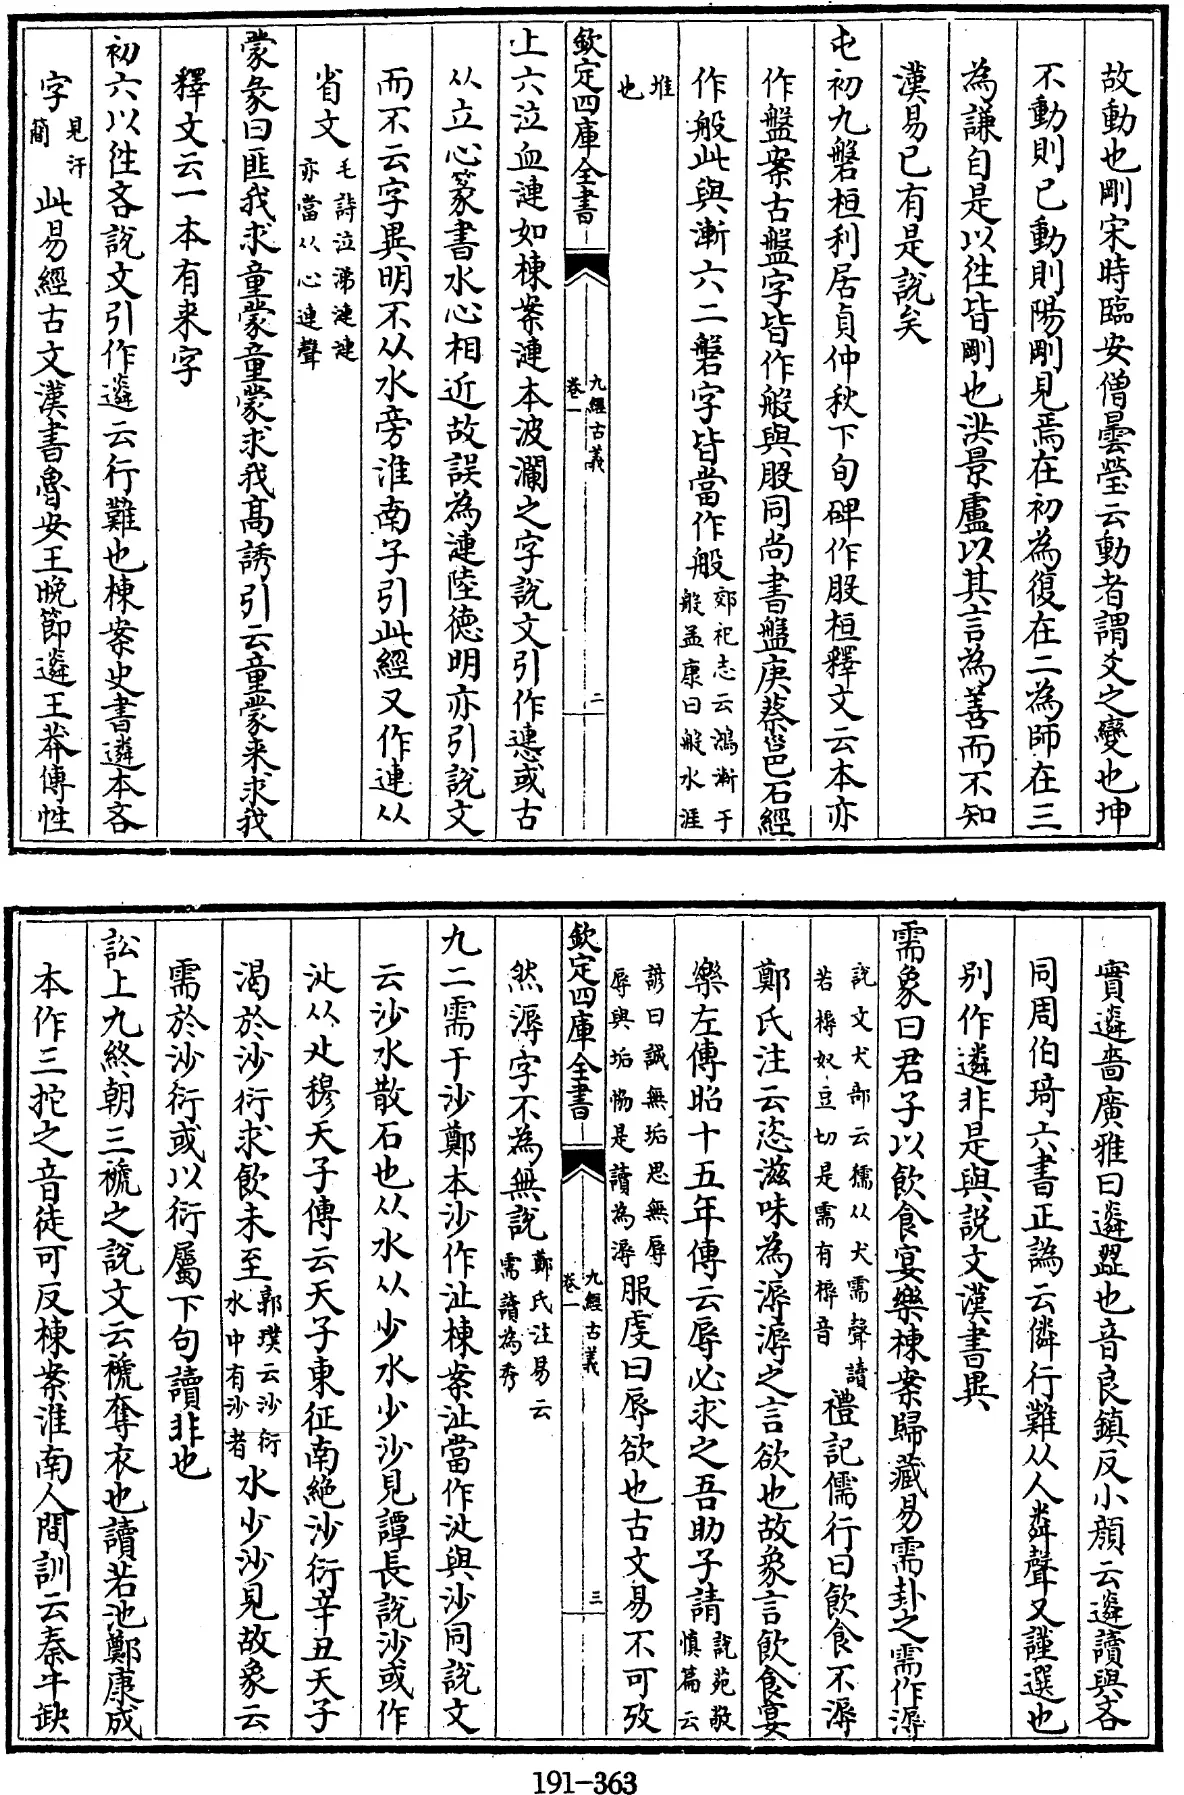 故動也剛宋時臨安僧曇瑩云動者謂爻之變也坤
不動則已動則陽剛見焉在初為復在二為師在三
為謙自是以往皆剛也洪景盧以其言為善而不知
漢易已有是說矣
屯初九磐桓利居貞仲秋下旬碑作股桓釋文云本亦
作盤案古盤字皆作般與股同尚書盤庚蔡邕石經
作般此與漸六二磐字皆當作般郊祀志云鴻漸于般孟康曰般水涯
堆也
欽定四庫全書 九經古義 卷一 二
上六泣血漣如棟案漣本波瀾之字說文引作㦁或古
从立心篆書水心相近故誤為漣陸德明亦引說文
而不云字異明不从水旁淮南子引此經又作連从
省文毛詩泣涕漣漣亦當从心連聲
蒙彖曰匪我求童蒙童蒙求我高誘引云童蒙來求我
釋文云一本有來字
初六以往吝說文引作遴云行難也棟案史書遴本吝
字見汗簡此易經古文漢書魯安王晩節遴王莽傳性
實遴嗇廣雅曰遴歰也音良鎮反小顔云遴讀與吝
同周伯琦六書正譌云僯行難从人粦聲又謹選也
別作遴非是與說文漢書異
需象曰君子以飲食宴樂棟案歸藏易需卦之需作溽
說文犬部云獳从犬需聲讀若槈奴豆切是需有槈音禮記儒行曰飲食不溽
鄭氏注云恣滋味為溽溽之言欲也故象言飲食宴
樂左傳昭十五年傳云辱必求之吾助子請說苑敬慎篇云
諺曰誠無垢思無辱辱與垢恊是讀為溽服虔曰辱欲也古文易不可攷
欽定四庫全書 九經古義 卷一 三
然溽字不為無說鄭氏注易云需讀為秀
九二需于沙鄭本沙作沚棟案沚當作沙與沙同說文
云沙水散石也从水从少水少沙見譚長說沙或作
沙从尐穆天子傳云天子東征南絶沙衍辛丑天子
渴於沙衍求飲未至郭璞云沙衍水中有沙者水少沙見故象云
需於沙衍或以衍屬下句讀非也
訟上九終朝三褫之說文云褫奪衣也讀若池鄭康成
本作三拕之音徒可反棟案淮南人間訓云秦牛缺
191-363